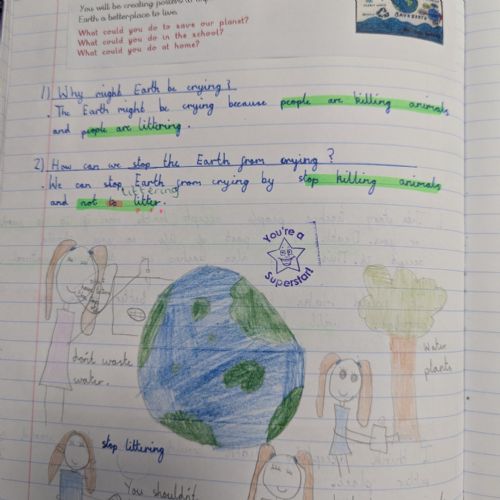 You will be creating posters
Earth a better place to live.
What could you do to save our planet?
What could you do in the school?
What could you do at home?
1) Why might Earth be crying?
The Earth might be crying because people are killing animals
and people are littering.
2) How can we stop the Earth from crying?
We can stop Earth from crying by stop killing animals
littering
and not to litter.
You're a
Superstar!
don't waste
water.
Water
plants
stop littering
You shouldn't